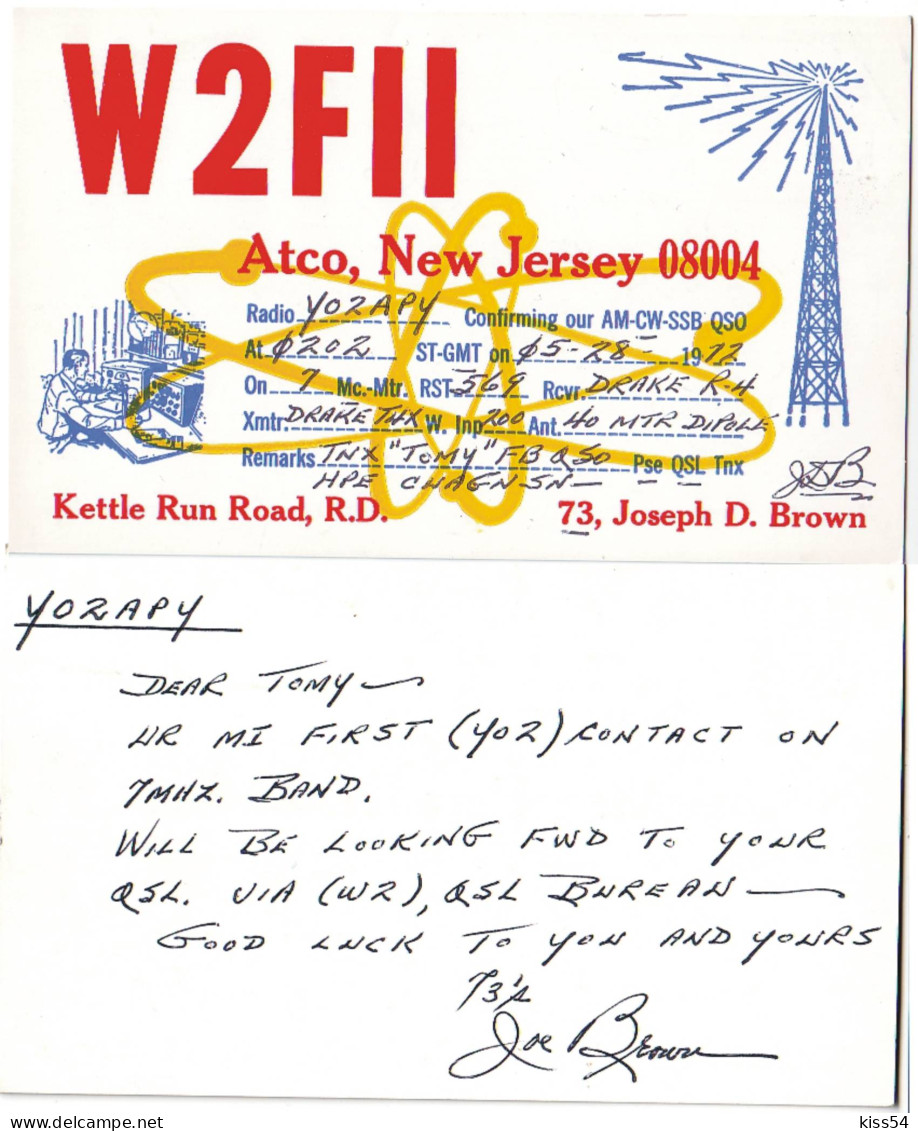 W2FII
Atco, New Jersey 08004
Radio YO2APY Confirming our AM-CW-SSB QSO
At Ø202 ST-GMT on Ø5-28- 1972
On 7 Mc.-Mtr. RST 569 Rcvr. DRAKE R-4
Xmtr DRAKE T4X W. Inp 200 Ant. 40 MTR DIPOLE
Remarks TNX "TOMY" FB QSO Pse QSL Tnx
HPE CUAGN SN- JDB
Kettle Run Road, R.D. 73, Joseph D. Brown
YO2APY
DEAR TOMY
UR MI FIRST (YO2) CONTACT ON
7MHZ. BAND.
WILL BE LOOKING FWD TO YOUR
QSL. VIA (W2), QSL BUREAU
GOOD LUCK TO YOU AND YOURS
73's
Joe Brown
delcampe.net
kiss54